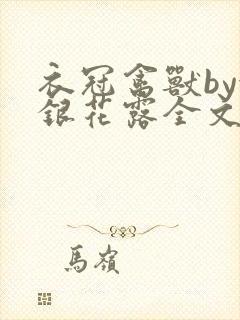 衣冠禽獸by
銀花露全文
馬嶺